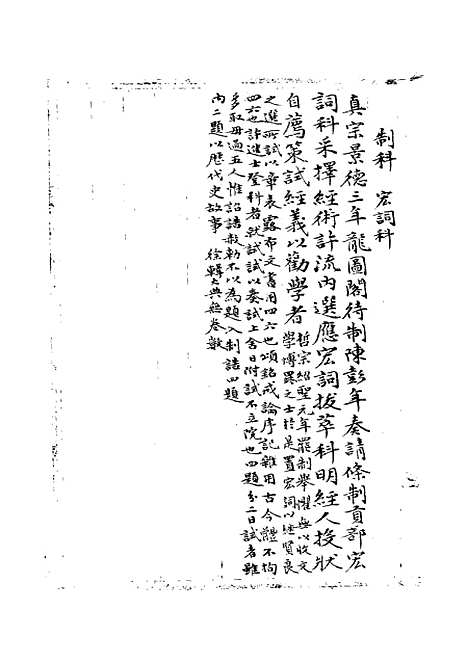 制科 宏詞科
真宗景德三年龍圖閣待制陳彭年奏請條制貢部宏
詞科采擇經術許流內選應宏詞拔萃科明經人投狀
自薦策試經義以勸學者
哲宗紹聖元年罷制舉懼無以收文
學博異之士於是置宏詞以繼賢良
之選所試以章表露布文書用四六也頌銘戒論序記雜用古今體不拘
四六也許進士登科者就試試以春試上舍日附試不立院也四題分二日試者雖
多取毋過五人惟詔誥赦勅不以為題入制誥四題
內二題以歷代史故事 徐輯大典無卷數